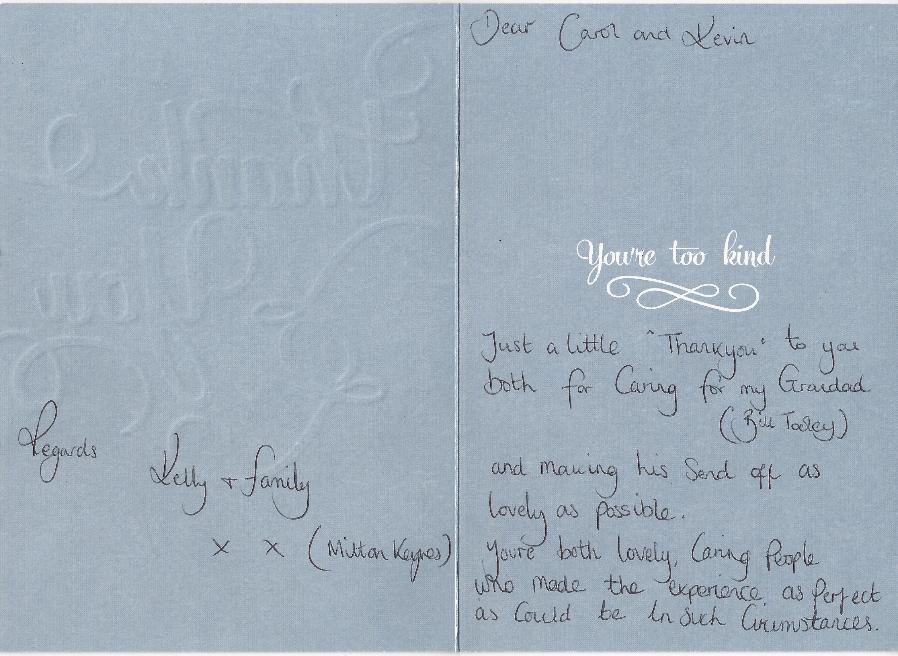 Dear Carol and Kevin
You're too kind
Just a little "Thankyou" to you
both for Caring for my Grandad
(Bill Tooley)
and making his Send off as
lovely as possible.
You're both lovely, Caring People
who made the experience as Perfect
as Could be In Such Circumstances.
Regards
Kelly + family
x x (Milton Keynes)
Thank
You